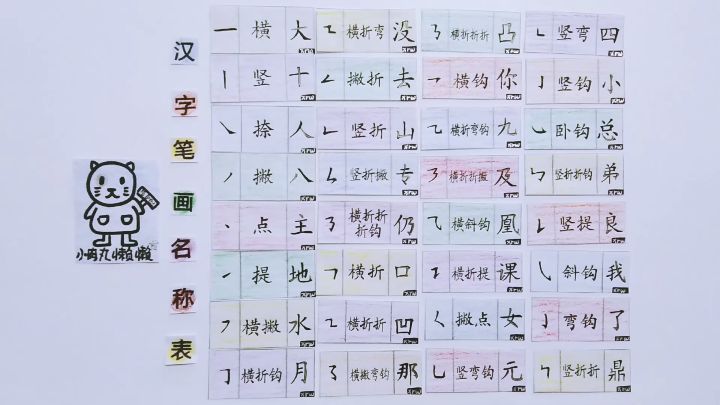 汉字笔画名称表
小肉丸懒懒
一 横 大
丨 竖 十
㇏ 捺 人
丿 撇 八
丶 点 主
㇀ 提 地
㇇ 横撇 水
𠃌 横折钩 月
㇍ 横折弯 没
𠃋 撇折 去
𠃊 竖折 山
ㄣ 竖折撇 专
㇡ 横折折折钩 仍
𠃍 横折 口
㇅ 横折折 凹
㇌ 横撇弯钩 那
㇎ 横折折折 凸
乛 横钩 你
㇈ 横折弯钩 九
㇋ 横折折撇 及
⺄ 横斜钩 凰
㇊ 横折提 课
𡿨 撇点 女
乚 竖弯钩 元
㇄ 竖弯 四
亅 竖钩 小
㇃ 卧钩 总
㇉ 竖折折钩 弟
𠄌 竖提 良
㇂ 斜钩 我
㇁ 弯钩 了
㇞ 竖折折 鼎